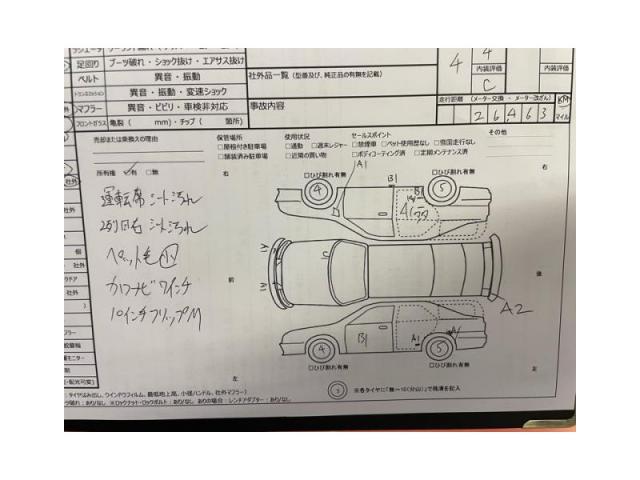 足回り ブーツ破れ・ショック抜け・エアサス抜け
ベルト 異音・振動
異音・振動・変速ショック
マフラー 異音・ビビリ・車検非対応
フロントガラス 亀裂( mm)・チップ( 箇所)
社外品一覧(型番及び、純正品の有無を記載)
事故内容
4
4
内装評価 内装評価
C
走行距離 (メーター交換・メーター改ざん)
26463
KM
マイル
売却または乗換えの理由
保管場所
□屋根付き駐車場
□舗装済み駐車場
使用状況
□通勤 □週末レジャー
□近隣の買い物
セールスポイント
□禁煙車 □ペット使用歴なし □雪国走行なし
□ボディコーティング済 □定期メンテナンス済
その他
所有権 ☑有 □無
運転席シート汚れ
2列目右 シート汚れ
ペット毛 小
カロナビ 7インチ
10インチフリップM
右
□ひび割れ有無
A1
□ひび割れ有無
4
B1
5
前
後
A2
B1
A1
A1
4
5
□ひび割れ有無
□ひび割れ有無
左
左
※各タイヤに「無~10(分山)」で残溝を記入
タイヤはみ出し、ウインドウフィルム、最低地上高、小径ハンドル、社外マフラー)
破れ:あり/なし ※ロックナット・ロックボルト:あり/なし ありの場合:レンチアダプター:あり/なし